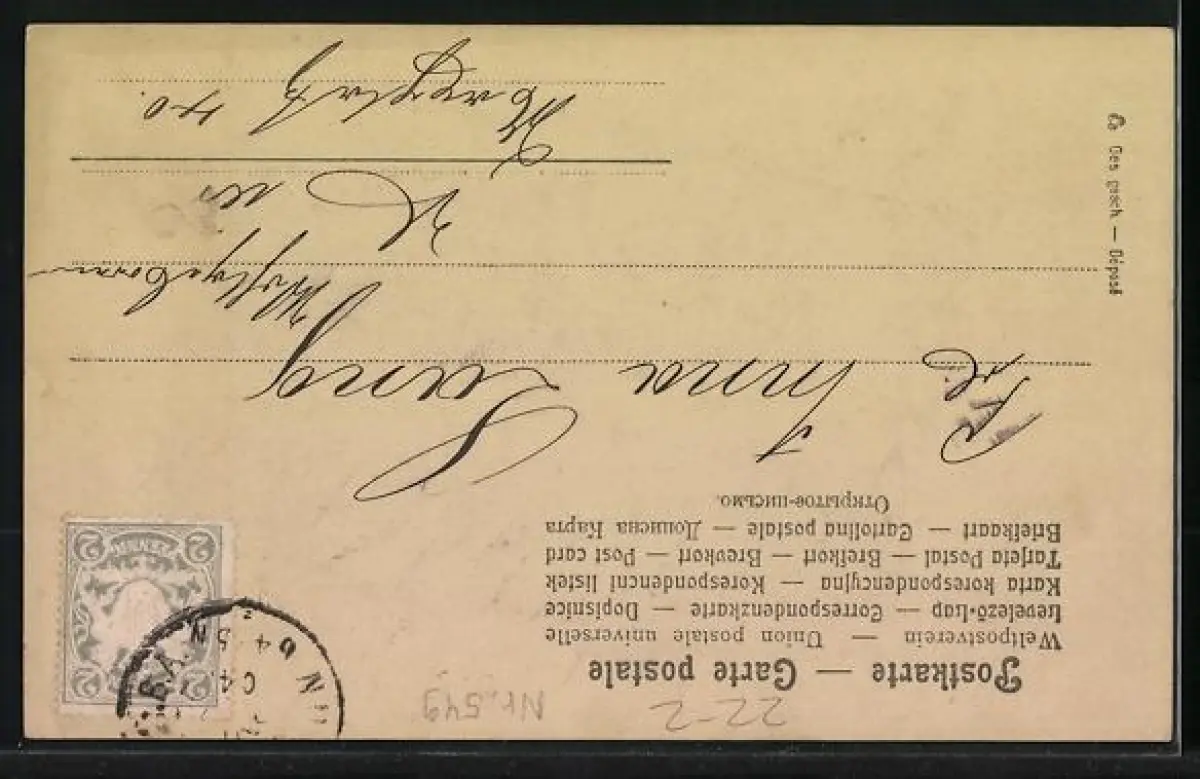 Nr. 549
22-2
Postkarte — Carte postale
Weltpostverein — Union postale universelle
Levelező-Lap — Correspondenzkarte — Dopisnice
Karta korespondencyjna — Korespondenční lístek
Tarjeta Postal — Brefkort — Brevkort — Post card
Briefkaart — Cartolina postale — Дописна Карта
Открытое-письмо.
2 2
2 2
B.A.
Frl. Anna Lang
Wohlgeboren
40.
Ges. gesch. — Déposé